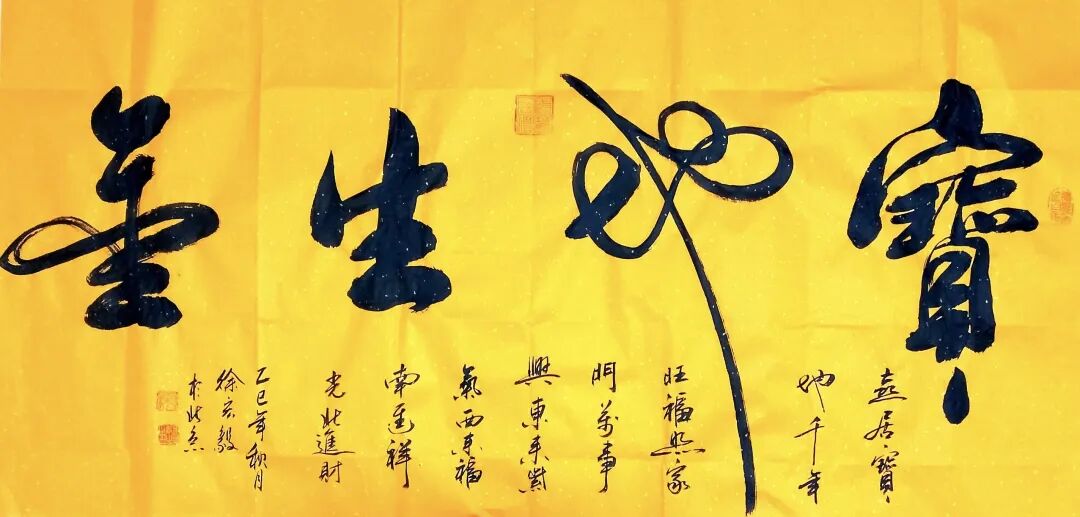 寶地生金
喜居寶
地千年
旺福照家
門萬事
興東來紫
氣西來福
南進祥
光北進財
乙巳年秋月
徐宏毅
於北京